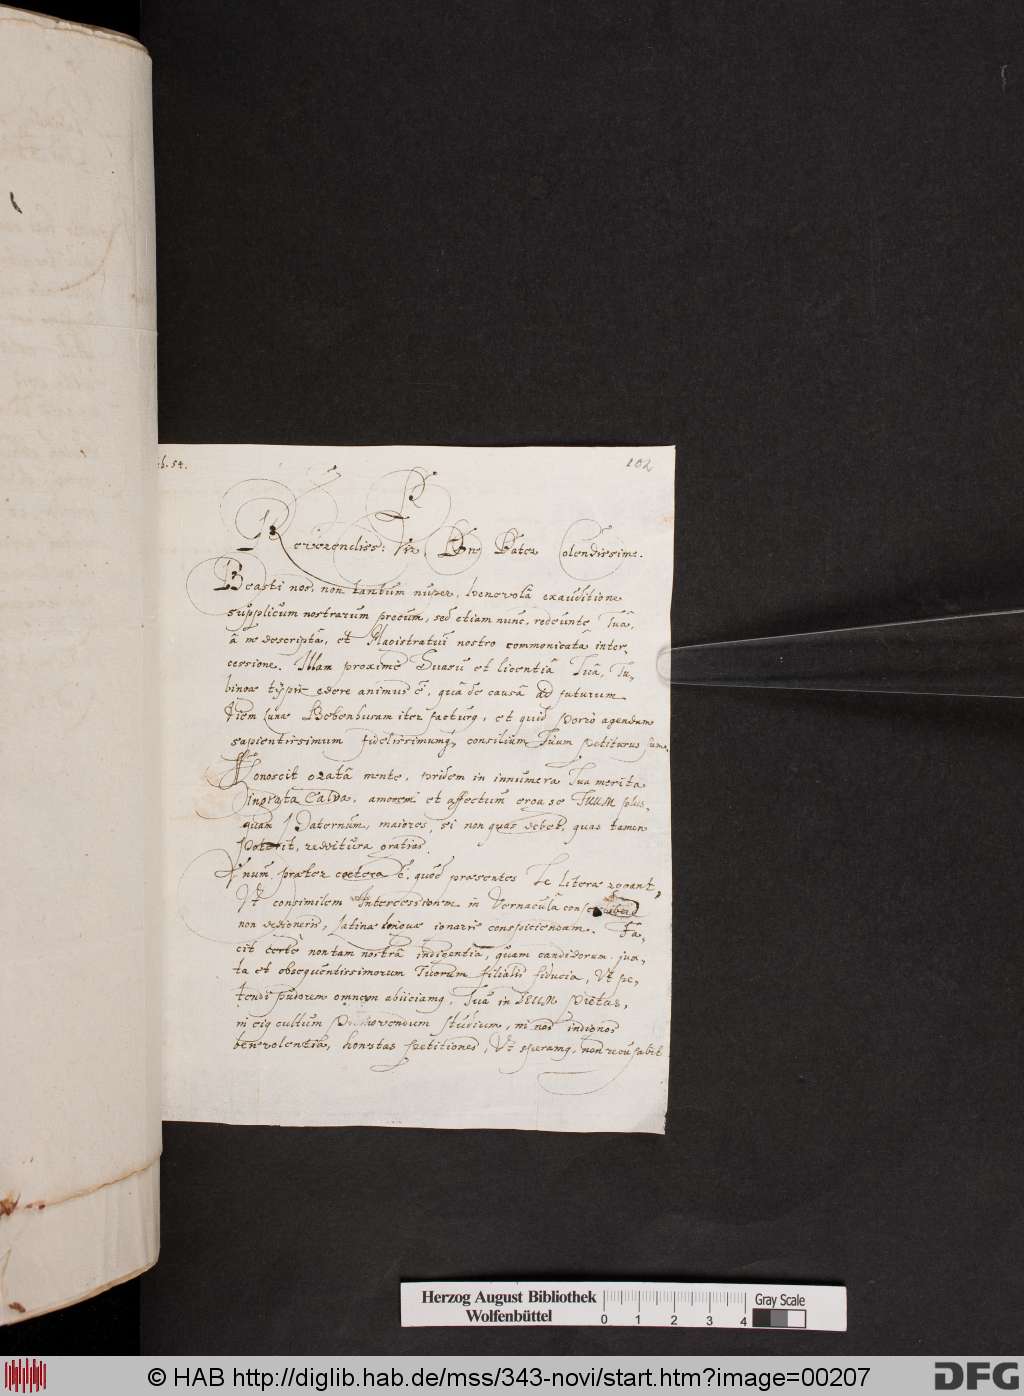 b. 54.
102
P
Reverendiss: Vir, Dne Pater Colendissime.
Beasti nos, non tantum nuper, benevolâ exauditione
supplicum nostrarum precum, sed etiam nunc, redeunte Tuâ,
â me descriptâ, et Magistratui nostro communicatâ inter-
cessione. Illam proxime Suasu et licentiâ Tuâ, Tu-
bingae typis edere animus ẽ, quâ de causâ ad futurum
diem Lunae Bebenhusam iter factur9, et quid porro agendum
sapientissimum fidelissimumq, consilium Tuum petiturus sum.
Agnoscit gratâ mente, pridem in innumera Tua merita
ingrata Calva, amorem et affectum erga se TUUM plus-
quam Paternum, maiores, si non quas debet, quas tamen
poterit, redditura gratias.
Unum praeter coetera ẽ, quod praesentes Te literae rogant,
Ut consimilem Intercessionem in Vernaculâ
non dedigneris, Latinae linguae ignaris conspiciendam. Fa-
cit certe non tam nostrâ indigentia, quam candidorum jux-
ta et obsequentissimorum Tuorum filialis fiducia, Ut pe-
tendi pudorem omnem abiiciam9, Tua in DEUM Pietas,
in eiq cultum promovendum studium, in nos indignos
benevolentia, honestas petitiones, Ut speram9, non recusabit
Herzog August Bibliothek
Wolfenbüttel
0 1 2 3 4
Gray Scale
© HAB http://diglib.hab.de/mss/343-novi/start.htm?image=00207
DFG